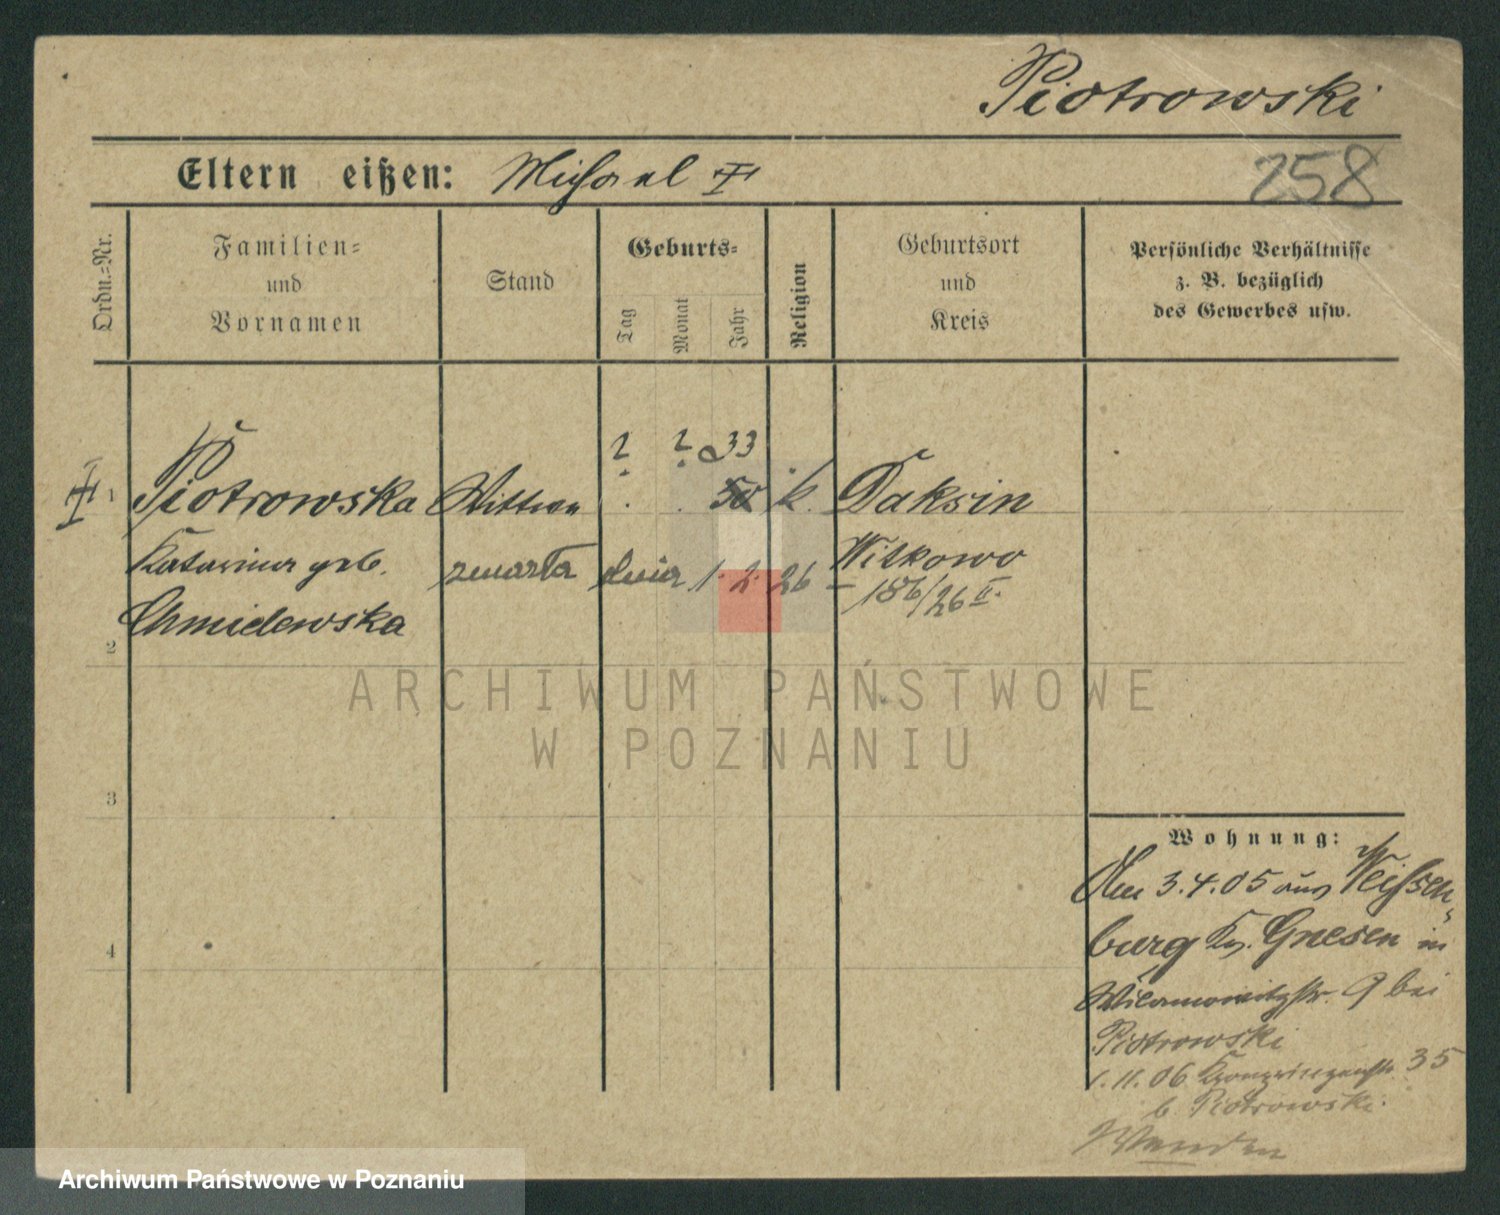 Piotrowski
Eltern eißen: Michael
258
Ordn.=Nr.
Familien=
und
Vornamen
Stand
Geburts=
Tag
Monat
Jahr
Religion
Geburtsort
und
Kreis
Persönliche Verhältnisse
z. B. bezüglich
des Gewerbes usw.
? ? 33
1 Piotrowska Wittwe . . 50 k. Daksin
Katarina geb. zmarła dnia 1.2.26 Witkowo
186/26 II.
Chmielewska
2
3
4
ARCHIWUM PAŃSTWOWE
W POZNANIU
Wohnung:
Am 3.4.05 aus Weissen-
burg Kr. Gnesen in
Wilamowitzstr. 9 bei
Piotrowski
1.11.06 Kronprinzenstr. 35
b Piotrowski.
Wenden
Archiwum Państwowe w Poznaniu